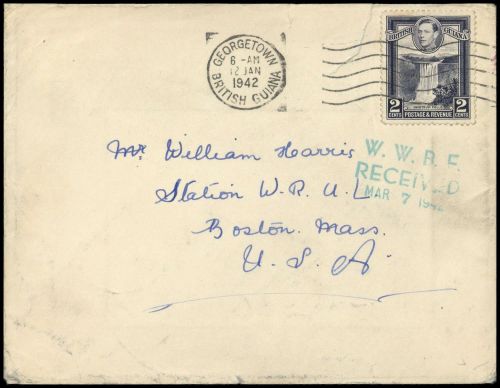 GEORGETOWN
6 - AM
12 JAN
1942
BRITISH GUIANA
BRITISH GUIANA
2 CENTS
POSTAGE & REVENUE
2 CENTS
Mr William Harris
Station W. R. U. L
Boston. Mass.
U. S. A.
W. W. B. F.
RECEIVED
MAR 7 1942